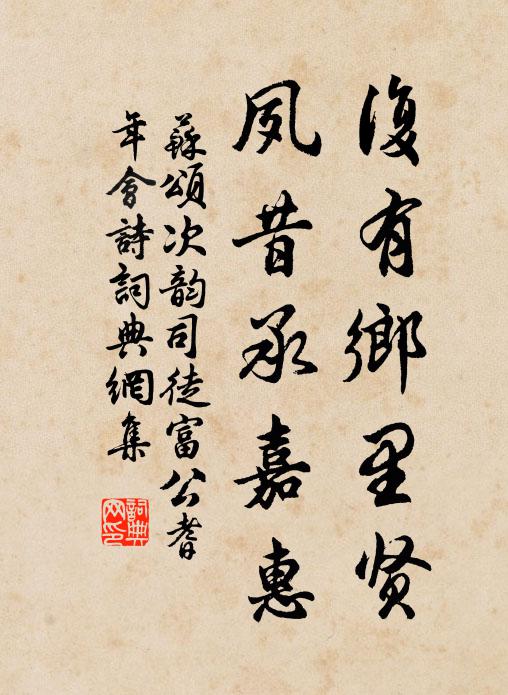 復有鄉里贤
夙昔承嘉惠
蘇頌次韵司徒富公耆
年會詩詞典網集
詞典网印